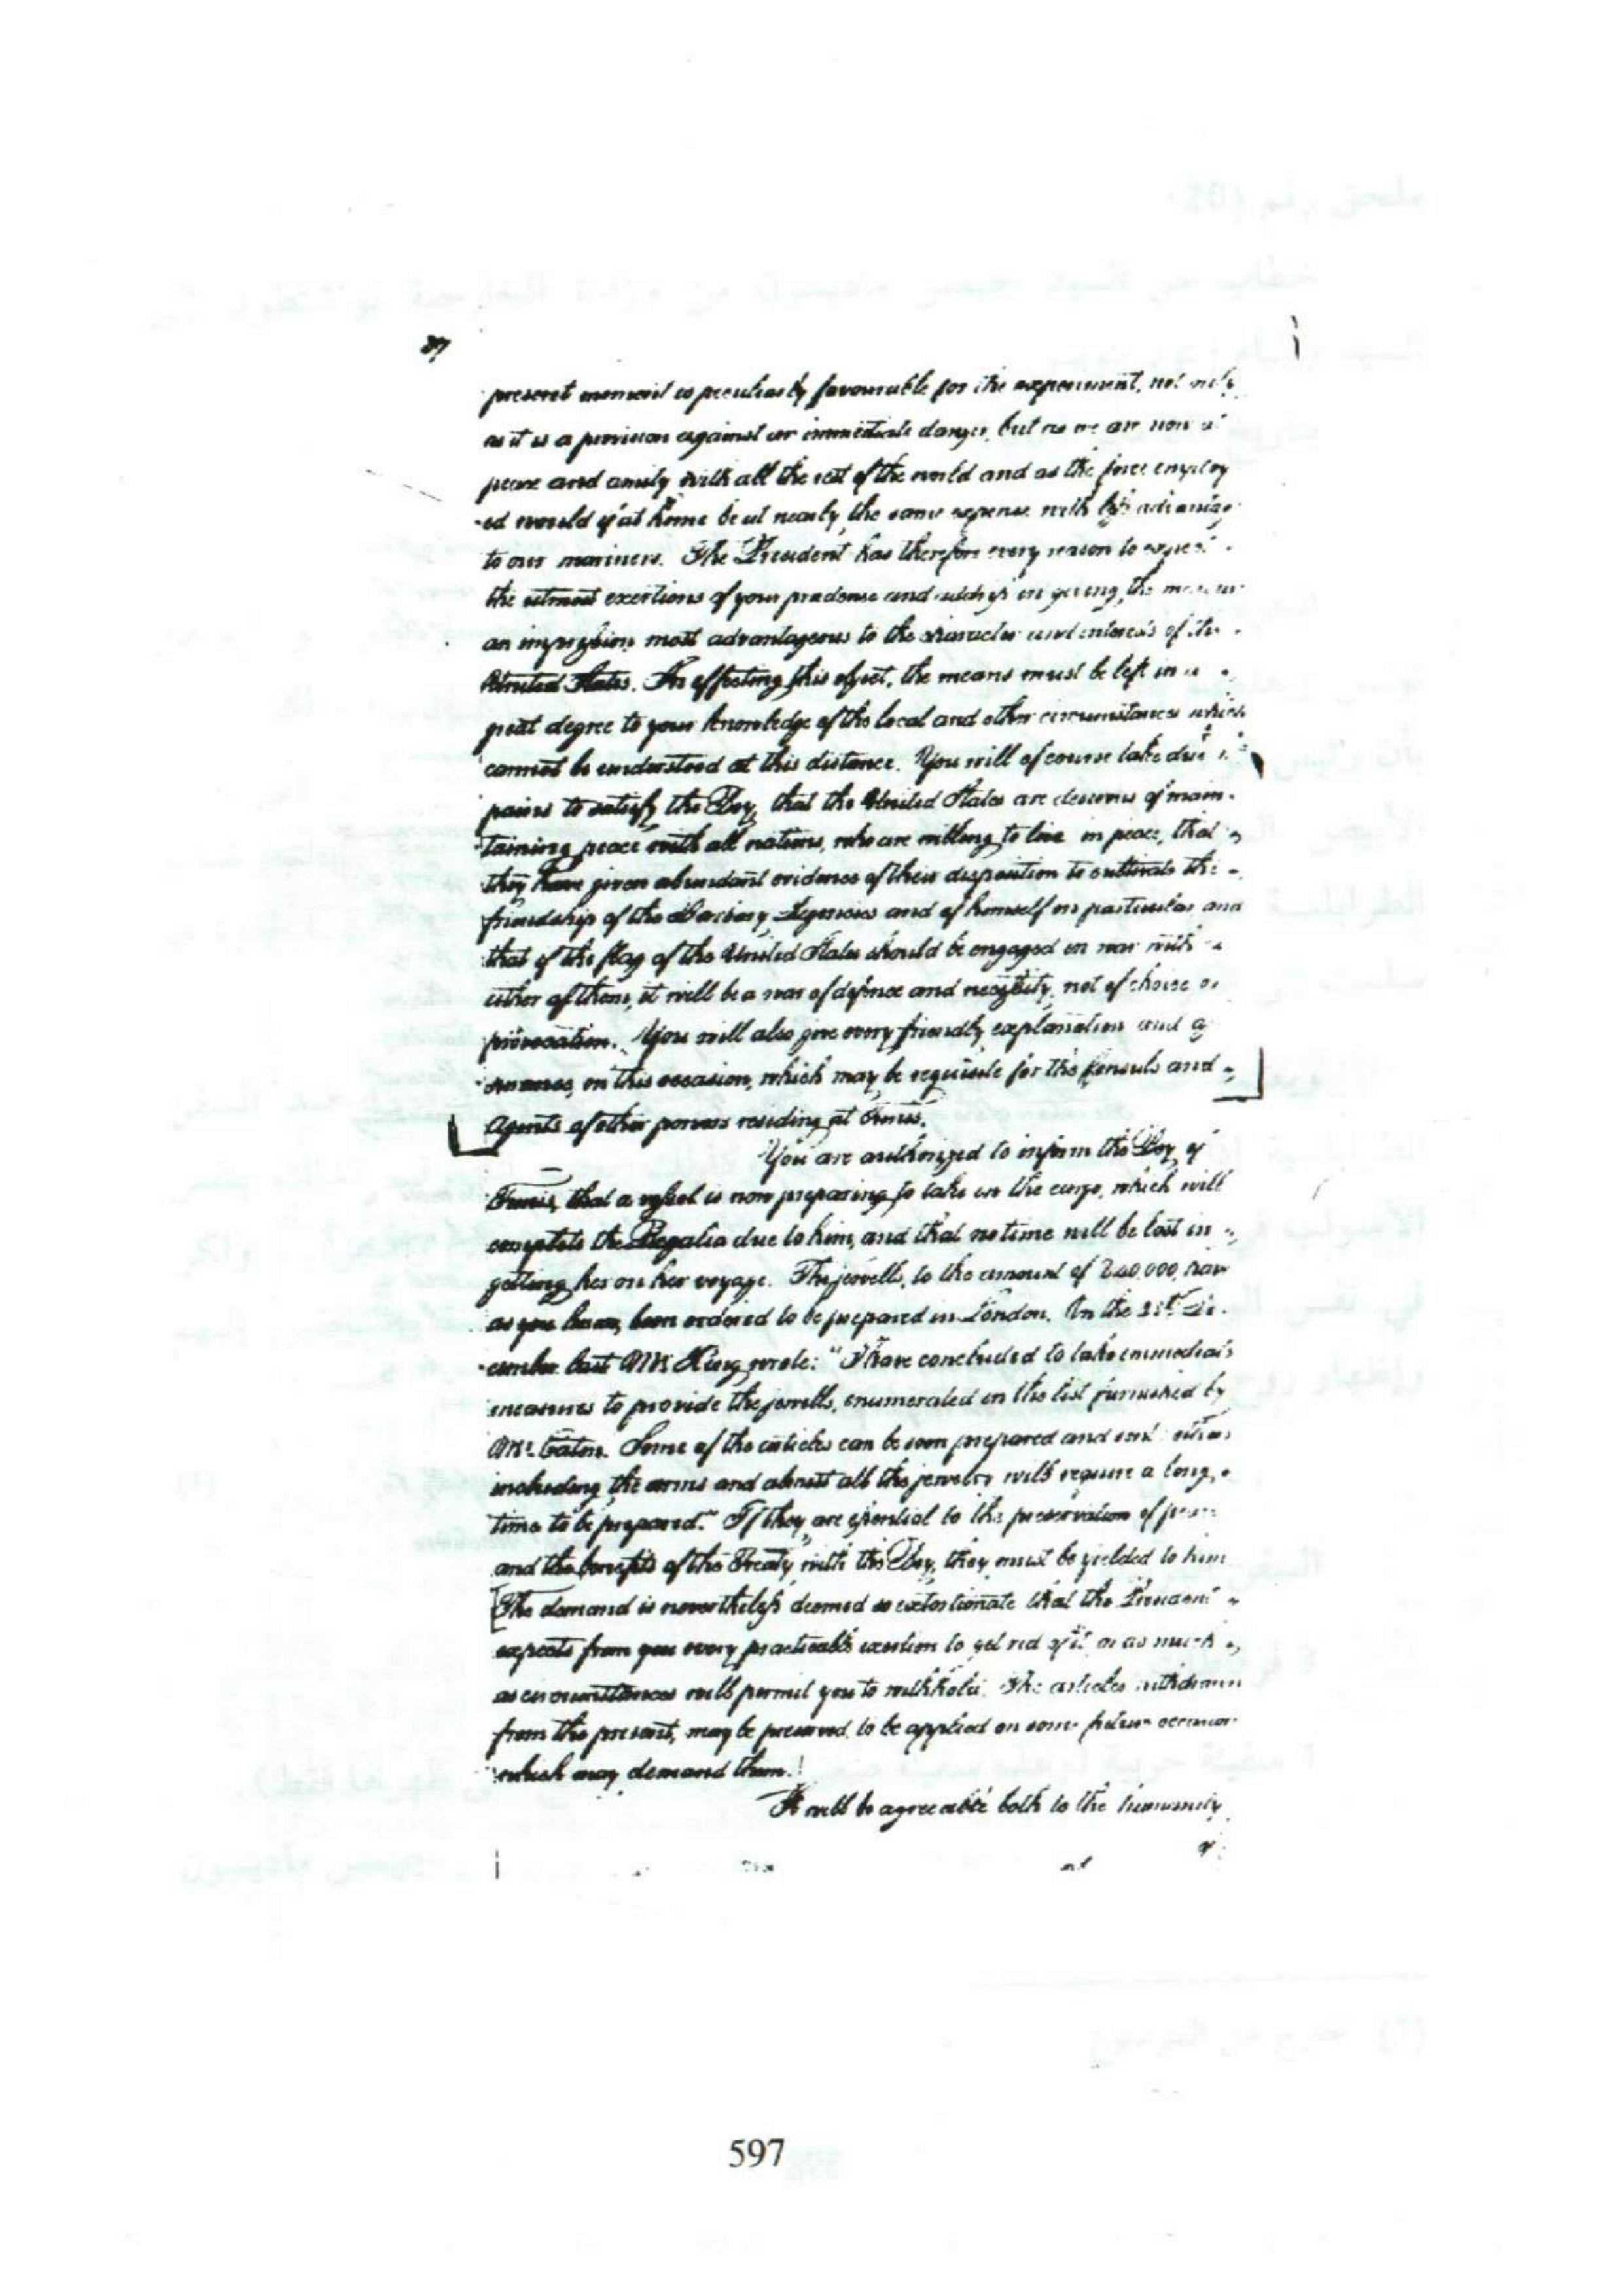 37
present moment is peculiarly favourable for the experiment, not only
as it is a provision against an immediate danger, but as we are now at
peace and amity with all the rest of the world and as the force employ
-ed would if at home be at nearly the same expense with less advantage
to our mariners. The President has therefore every reason to expect
the utmost exertions of your prudence and address in giving the measure
an impression most advantageous to the character and interests of the
United States. In effecting this object, the means must be left in a
great degree to your knowledge of the local and other circumstances which
cannot be understood at this distance. You will of course take due
pains to satisfy the Bey, that the United States are desirous of main-
taining peace with all nations, who are willing to live in peace, that
they have given abundant evidence of their disposition to cultivate the
friendship of the Barbary Regencies and of himself in particular and
that if the flag of the United States should be engaged in war with
either of them, it will be a war of defence and necessity, not of choice or
provocation. You will also give every friendly explanation and
on this occasion, which may be requisite for the Consuls and
Agents of other powers residing at Tunis.
You are authorized to inform the Bey of
Tunis, that a vessel is now preparing to take in the cargo, which will
complete the Regalia due to him, and that no time will be lost in
getting her on her voyage. The jewells, to the amount of 240,000, have
as you know, been ordered to be prepared in London. On the
-cember last Mr. King wrote: "I have concluded to take immediate
measures to provide the jewells, enumerated in the list furnished by
Mr. Eaton. Some of the articles can be soon prepared and sent others
including the arms and almost all the jewelry will require a long
time to be prepared." If they are essential to the preservation of peace
and the benefits of the Treaty with the Bey, they must be yielded to him
[The demand is nevertheless deemed so extortionate that the President
expects from you every practicable exertion to get rid of it or as much
as circumstances will permit you to withhold. The articles withdrawn
from the present, may be preserved to be applied on some future occasion
which may demand them.]
It will be agreeable both to the humanity
597